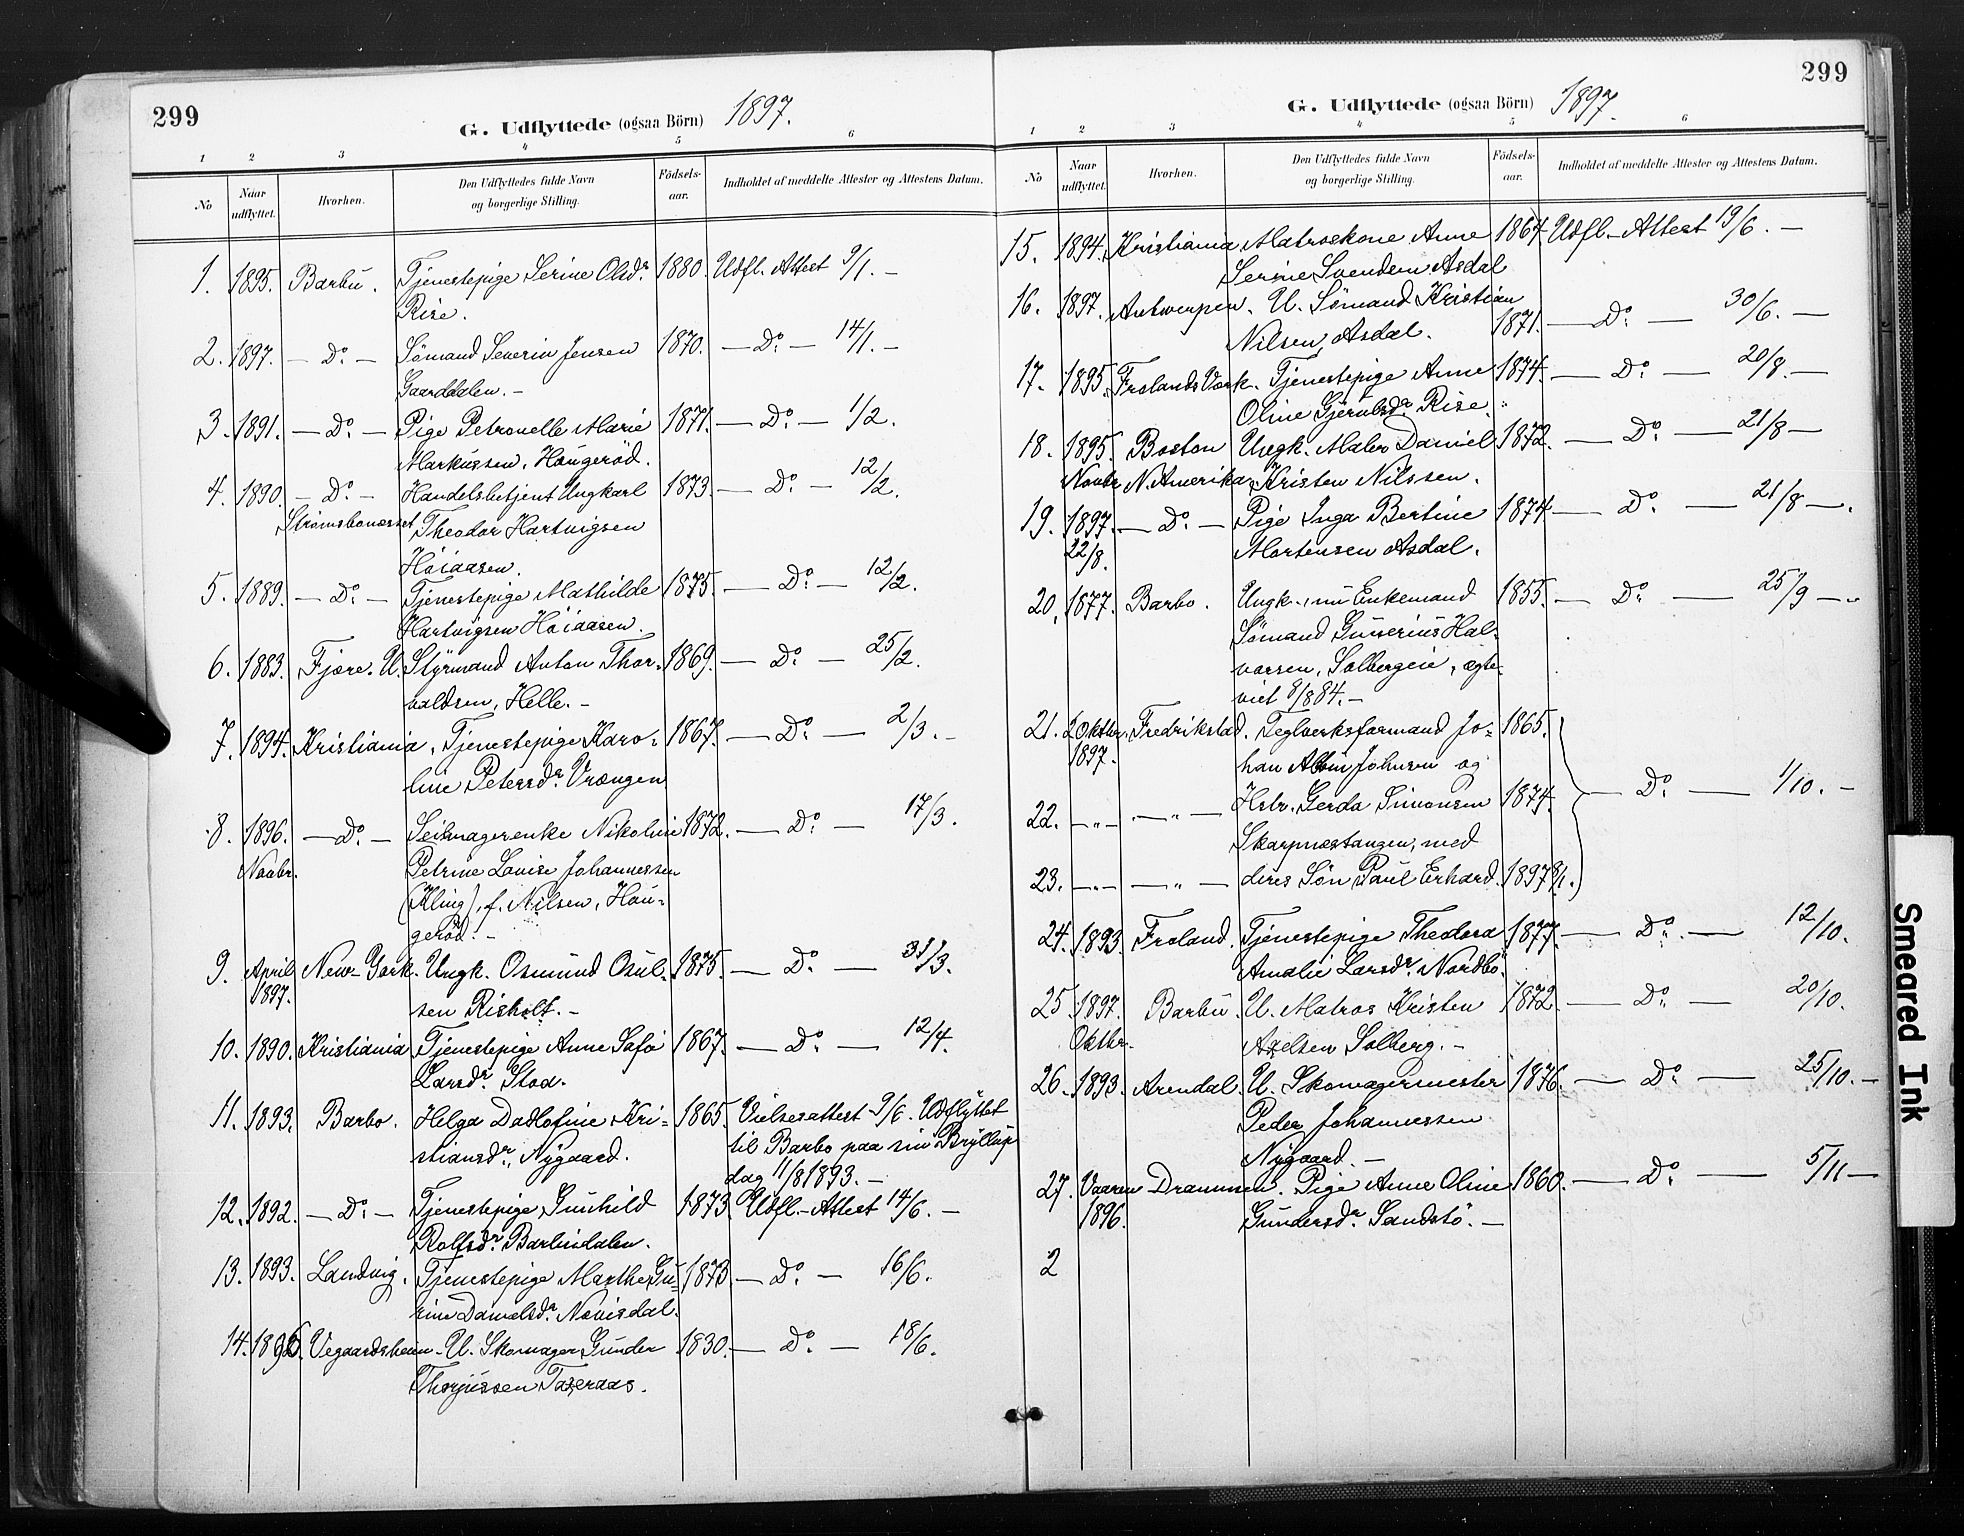 299
G. Udflyttede (ogsaa Börn) 1897.
1 2 3 4 5 6
No
Naar udflyttet.
Hvorhen.
Den Udflyttedes fulde Navn og borgerlige Stilling.
Födsels-aar.
Indholdet af meddelte Attester og Attestens Datum.
1. 1895. Barbu. Tjenestepige Serine Olsdr. 1880. Udfl. Attest 9/1. –
Rise.
2. 1897. – Do. – Sömand Severin Jensen 1870. – Do. – 14/1. –
Gaarddalen. –
3. 1891. – Do. – Pige Petronelle Marie 1871. – Do. – 1/2.
Markussen, Haugeröd.
4. 1890. – Do. – Handelsbetjent Ungkarl 1873. – Do. – 12/2.
Strömsbonesset Theodor Hartvigsen
Höiaasen.
5. 1889. – Do. – Tjenestepige Mathilde 1875. – Do. – 12/2.
Hartvigsen Höiaasen.
6. 1883. Fjære. U. Styrmand Anton Thor- 1869. – Do. – 25/2.
valdsen, Helle. –
7. 1894. Kristiania. Tjenestepige Karo- 1867. – Do. – 2/3. –
line Petersdr. Vrængen
8. 1896. – Do. – Seilmagerenke Nikoline 1872. – Do. – 17/3.
Novbr. Petrine Lovise Johannessen
(Kling), f. Nilsen, Hau-
geröd. –
9. April New-York. Ungk. Osmund Osul- 1875. – Do. – 31/3.
1897. sen Risholt. –
10. 1890. Kristiania Tjenestepige Anne Sofie 1867. – Do. – 12/4.
Larsdr. Stoa.
11. 1893. Barbo. Helga Dadlofine Kri- 1865. Vielsesattest 9/6. Udflyttet
stiansdr., Nygaard. til Barbo paa sin Bryllups
dag 11/8 1893. –
12. 1892. – Do. – Tjenestepige Gunhild 1873. Udfl.-Attest 14/6. –
Rolfsdr. Barlindalen.
13. 1893. Landvig. Tjenestepige Marthe Gu- 1873. – Do. – 16/6.
rine Danielsdr. Novisdal.
14. 1896. Vegaardsheien. U. Skomager Gunder 1830. – Do. – 18/6.
Thorjussen Taseraas.
299
G. Udflyttede (ogsaa Börn) 1897.
1 2 3 4 5 6
No
Naar udflyttet.
Hvorhen.
Den Udflyttedes fulde Navn og borgerlige Stilling.
Födsels-aar.
Indholdet af meddelte Attester og Attestens Datum.
15. 1894. Kristiania Matroskone Anne 1864. Udfl.-Attest 19/6. –
Serine Svendsen Asdal
16. 1897. Antwerpen. U. Sömand Kristian
Nilsen, Asdal. 1871. – Do. – 30/6. –
17. 1895. Frolands Værk. Tjenestepige Anne 1874. – Do. – 20/8. –
Oline Gjerulfsdr. Rise.
18. 1895. Boston Ungk. Maler Daniel 1872. – Do. – 21/8 –
Novbr. N. Amerika. Kristen Nilssen.
19. 1897. – Do. – Pige Inga Bertine 1874. – Do. – 21/8 –.
22/8. Mortensen Asdal.
20. 1877. Barbo. Ungk., nu Enkemand 1855. – Do. – 25/9 –
Sömand Gunerius Hal-
vorsen, Solbergeie, ægte-
viet 9/8 84. –
21. 2 Oktbr. Fredrikstad. Teglverksformand Jo- 1865.
1897. han Albin Johnsen og
22. – „ – – „ – Hstr. Gerda Simonsen 1874. – Do. – 1/10. –
Skarpnæstangen, med
23. – „ – – „ – deres Søn Paul Erhard. 1897
24. 1893. Froland. Tjenestepige Theodora 1877. – Do. – 12/10.
Amalie Larsdr. Nordbö.
25. 1897. Barbu. U. Matros Kristen 1872. – Do. – 20/10.
Oktbr. Axelsen Solberg. –
26. 1893. Arendal. U. Skomagermester 1876. – Do. – 25/10. –
Peder Johannessen
Nygaard. –
27. Vaaren Drammen. Pige Anne Oline 1860. – Do. – 5/11 –
1896. Gundersdr. Sandstö. –
2
Smeared Ink